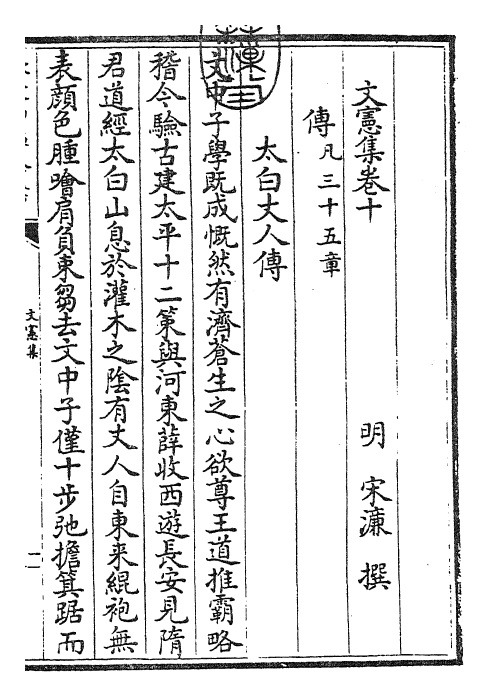 文憲集卷十
明　宋濂　撰
傳凡三十五章
太白丈人傳
文中子學既成慨然有濟蒼生之心欲尊王道推霸略
稽今驗古建太平十二策與河東薛收西遊長安見隋
君道經太白山息於灌木之陰有丈人自東来緼袍無
表顔色腫噲肩負束芻去文中子僅十步弛擔箕踞而
文憲集
一